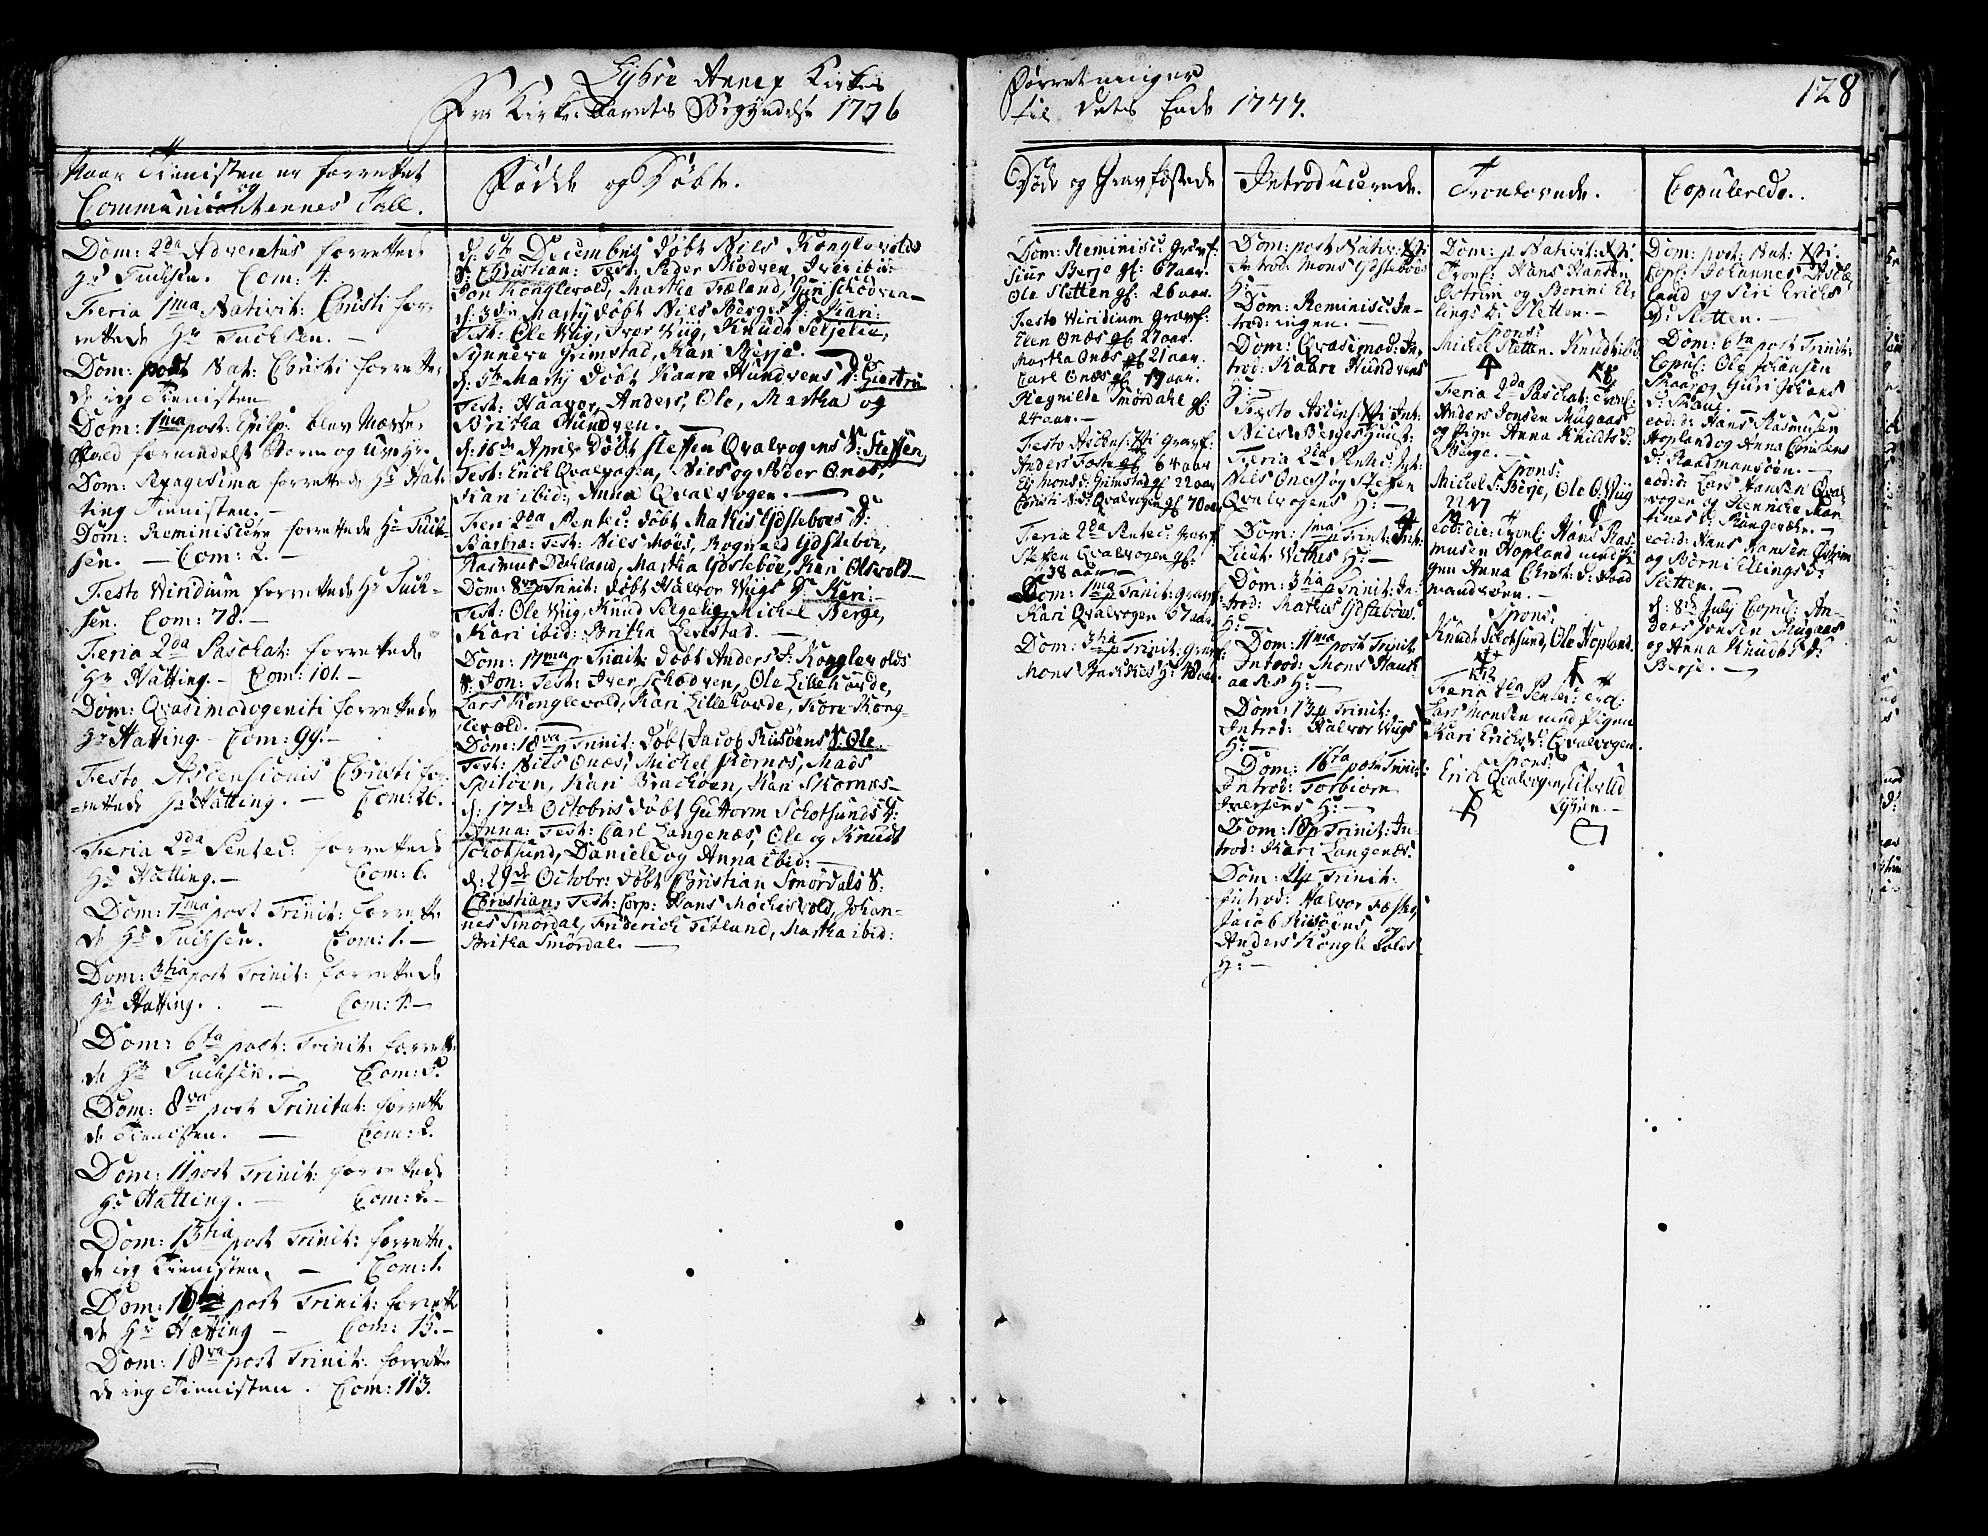 Lysøe Annex Kirkes
Fra Kirke-Aarets Begyndelse 1776
Forretninger
til dets Ende 1777.
128
Naar Tienisten er forrettet
og
Communicantennes Tall.
Dom: 2da Adventus forrettede
Hr Tuchsen. Com: 4.
Feria 1ma Nativit: Christi for-
rettede Hr Tuchsen. —
Dom: post Nat: Christi forrette-
de ieg Tienisten
Dom: 1ma post: Epip: blev Messe-
fald formedelst Storm og Uveyr.
Dom: Sexagesima forrettede Hr Hat-
ting Tienisten. —
Dom: Reminiscere forrettede Hr Tuch-
sen. — Com: 2. —
Festo Viridium forrettede Hr Tuch-
sen. Com: 78. —
Feria 2da Paschat: forrettede
Hr Hatting. — Com: 101. —
Dom: Qvasimodogeniti forrettede
Hr Hatting — Com: 99. —
Festo Ascensionis Christi for-
rettede Hr Hatting. — Com: 26.
Feria 2da Pentec: forrettede
Hr Hatting. — Com: 6.
Dom: 1ma post Trinit: forrette
de Hr Tuchsen. Com: 1. —
Dom: 3tia post Trinit: forrettede
Hr Hatting. — Com: 4. —
Dom: 6ta post: Trinit: forrette-
de Hr Tuchsen. — Com: 5.
Dom: 8va post Trinitat: forrette
de Tienisten. — Com: 2.
Dom: 11 post Trinit: forrettede
Hr Hatting. — Com: 2. —
Dom: 13tia post Trinit: forrette-
de ieg Tienisten. — Com: 1.
Dom: 16ta post Trinit: forrette
de Hr Hatting — Com: 15. —
Dom: 18va post Trinit: forrette
de ieg Tienisten. Com: 113.
Fødde og Døbte.
d: 5te Decembris døbt Niels Konglevolds
S: Christian: Test: Peder Skodven, Iver ibid:
Jon Konglevold, Martha Træland, Guri Schodven —
d: 3die Martij døbt Niels Berges D: Kari:
Test: Ole Wiig, Iver Wiig, Knudt Seljelie,
Synneva Grimstad, Kari Berje. —
d: 5te Martij døbt Kaare Hundvens D: Giertru
Test: Haavor, Anders, Ole, Martha og
Britha Hundven. —
d: 16de April døbt Steffen Qvalvogens S: Steffen,
Test: Erich Qvalvagen, Niels og Peder Onæs,
Kari ibid:, Anna Qvalvogen. —
Feri 2da Pentec: døbt Mathis Gdstebøes D:
Barbra: Test: Niels Møes, Rognald Gdstebøe,
Rasmus Hopland, Martha Gdstebøe, Kari Olsvold —
Dom: 8va p Trinit: døbt Halvor Wiigs D: Kari: —
Test: Ole Wiig, Knud Selgelie, Michel Berge,
Kari ibid: Britha Levestad. —
Dom: 17ma p Trinit: døbt Anders S: Konglevolds
S: Jon: Test: Iver Schodven, Ole Lillehovde,
Lars Konglevold, Kari Lillehovde, Kari Kong-
levold. —
Dom: 18va p Trinit: døbt Jacob Riisøens S: Ole.
Test: Nils Onæs, Michel Kornæs, Mads
Spitøen, Kari Brachøen, Kari Skornæs —
d: 17de Octobris døbt Guttorm Schotsunds D:
Anna: Test: Carl Langenæs, Ole og Knudt
Schotsund, Daniel og Anna ibid: —
d: 29de Octobr: døbt Christian Smørdals S:
Christian: Test: Corp: Hans Mochisvold, Johan-
nes Smørdal, Friderich Titland, Martha ibid:
Britha Smørdal. —
Døde og Gravfæstede
Dom: Reminisc: Gravf:
Siur Berje gl: 67 aar.
Ole Sletten gl: 26 aar.
Festo Viridium gravf:
Elen Onæs gl 27 aar.
Martha Onæs gl 21 aar.
Carl Onæs gl 19 aar.
Ragnilde Smørdahl gl:
24 aar. —
Festo Ascens: Xti Gravf:
Anders Foste gl 64 aar
Elj Mons D: Grimstad gl 22 aar
Christi N: D: Qvalvogen gl 70 aar
Feria 2da Pentec: Gravf:
Steffen Qvalvogen gl:
38 aar —
Dom: 1ma p Trinit: gravf:
Kari Qvalvogen 67 aar
Dom: 3tia p Trinit: gravf:
Mons Bachkes H: 48 aar
Introducerede.
Dom: post Nativ: Xti
Introd: Mons Gdstebøes
H: —
Dom: Reminisc: In-
trod: ingen. —
Dom: Qvasimod: In-
trod: Kaare Hundvens
H: —
Festo Ascens: Xti Int:
Niels Berges Hust: —
Feria 2da Pentec: Int:
Niels Onæs og Steffen
Qvalvogens H: —
Dom: 1ma p Trinit: Int:
Lieut: Wethes H: —
Dom: 3tia p Trinit: In-
trod: Mathis Gdstebøes
H: —
Dom: 11ma post Trinit
Introd: Mons Hauk
aases H: —
Dom: 13 p Trinit:
Introd: Halvor Wiigs
H: —
Dom: 16ta post Trinit:
Introd: Torbiørn
Iversens H: —
Dom: 18 p Trinit: In-
trod: Kari Langenæs.
Dom: 21 p Trinit:
Introd: Halvor Fæste,
Jacob Riisøens, og
Anders Kongle Volds
H: —
Troelovede.
Dom: p Nativit: Xti.
Trol: Hans Hansen
Østrim og Børni El-
lings D: Sletten. —
Spons:
Michel Sletten. Knudt ibid
Feria 2da Paschat: Trol:
Anders Jonsen Mugaas
og Pigen Anna Knudts D:
Berge. —
Spons:
Michel S: Berje, Ole O: Wiig
eod: die: Trol: Hans Ras-
musen Hopland med Pi-
gen Anna Christ: D: Raad
mandsøen. —
Spons:
Knudt Schotsund, Ole Hopland.
Feria 2da Pentec: Trol:
Lars Monsen med Pigen
Kari Erichs D: Qvalvogen.
Spons:
Erich Qvalvogen, Eilert
Lysøen. —
Copulerede.
Dom: post: Nat: Xti.
Copl: Johannes
land og Siri Erichs
D: Sletten. —
Dom: 6ta post Trinit:
Copul: Ole Johansen
Skaar og Guri Johans
D: Skaar. —
eod: d: Hans Rasmusen
Hopland og Anna Christens
D: Raadmansøen. —
eod: d: Lars Hansen Qval
vogen og Henriche Mar
tines D: Kongevole. —
eod: d: Hans Hansen Østrim
og Børni Ellings D:
Sletten. —
d: 8de July Copul: An-
ders Jonsen Mugaas
og Anna Knudts D:
Berje. —